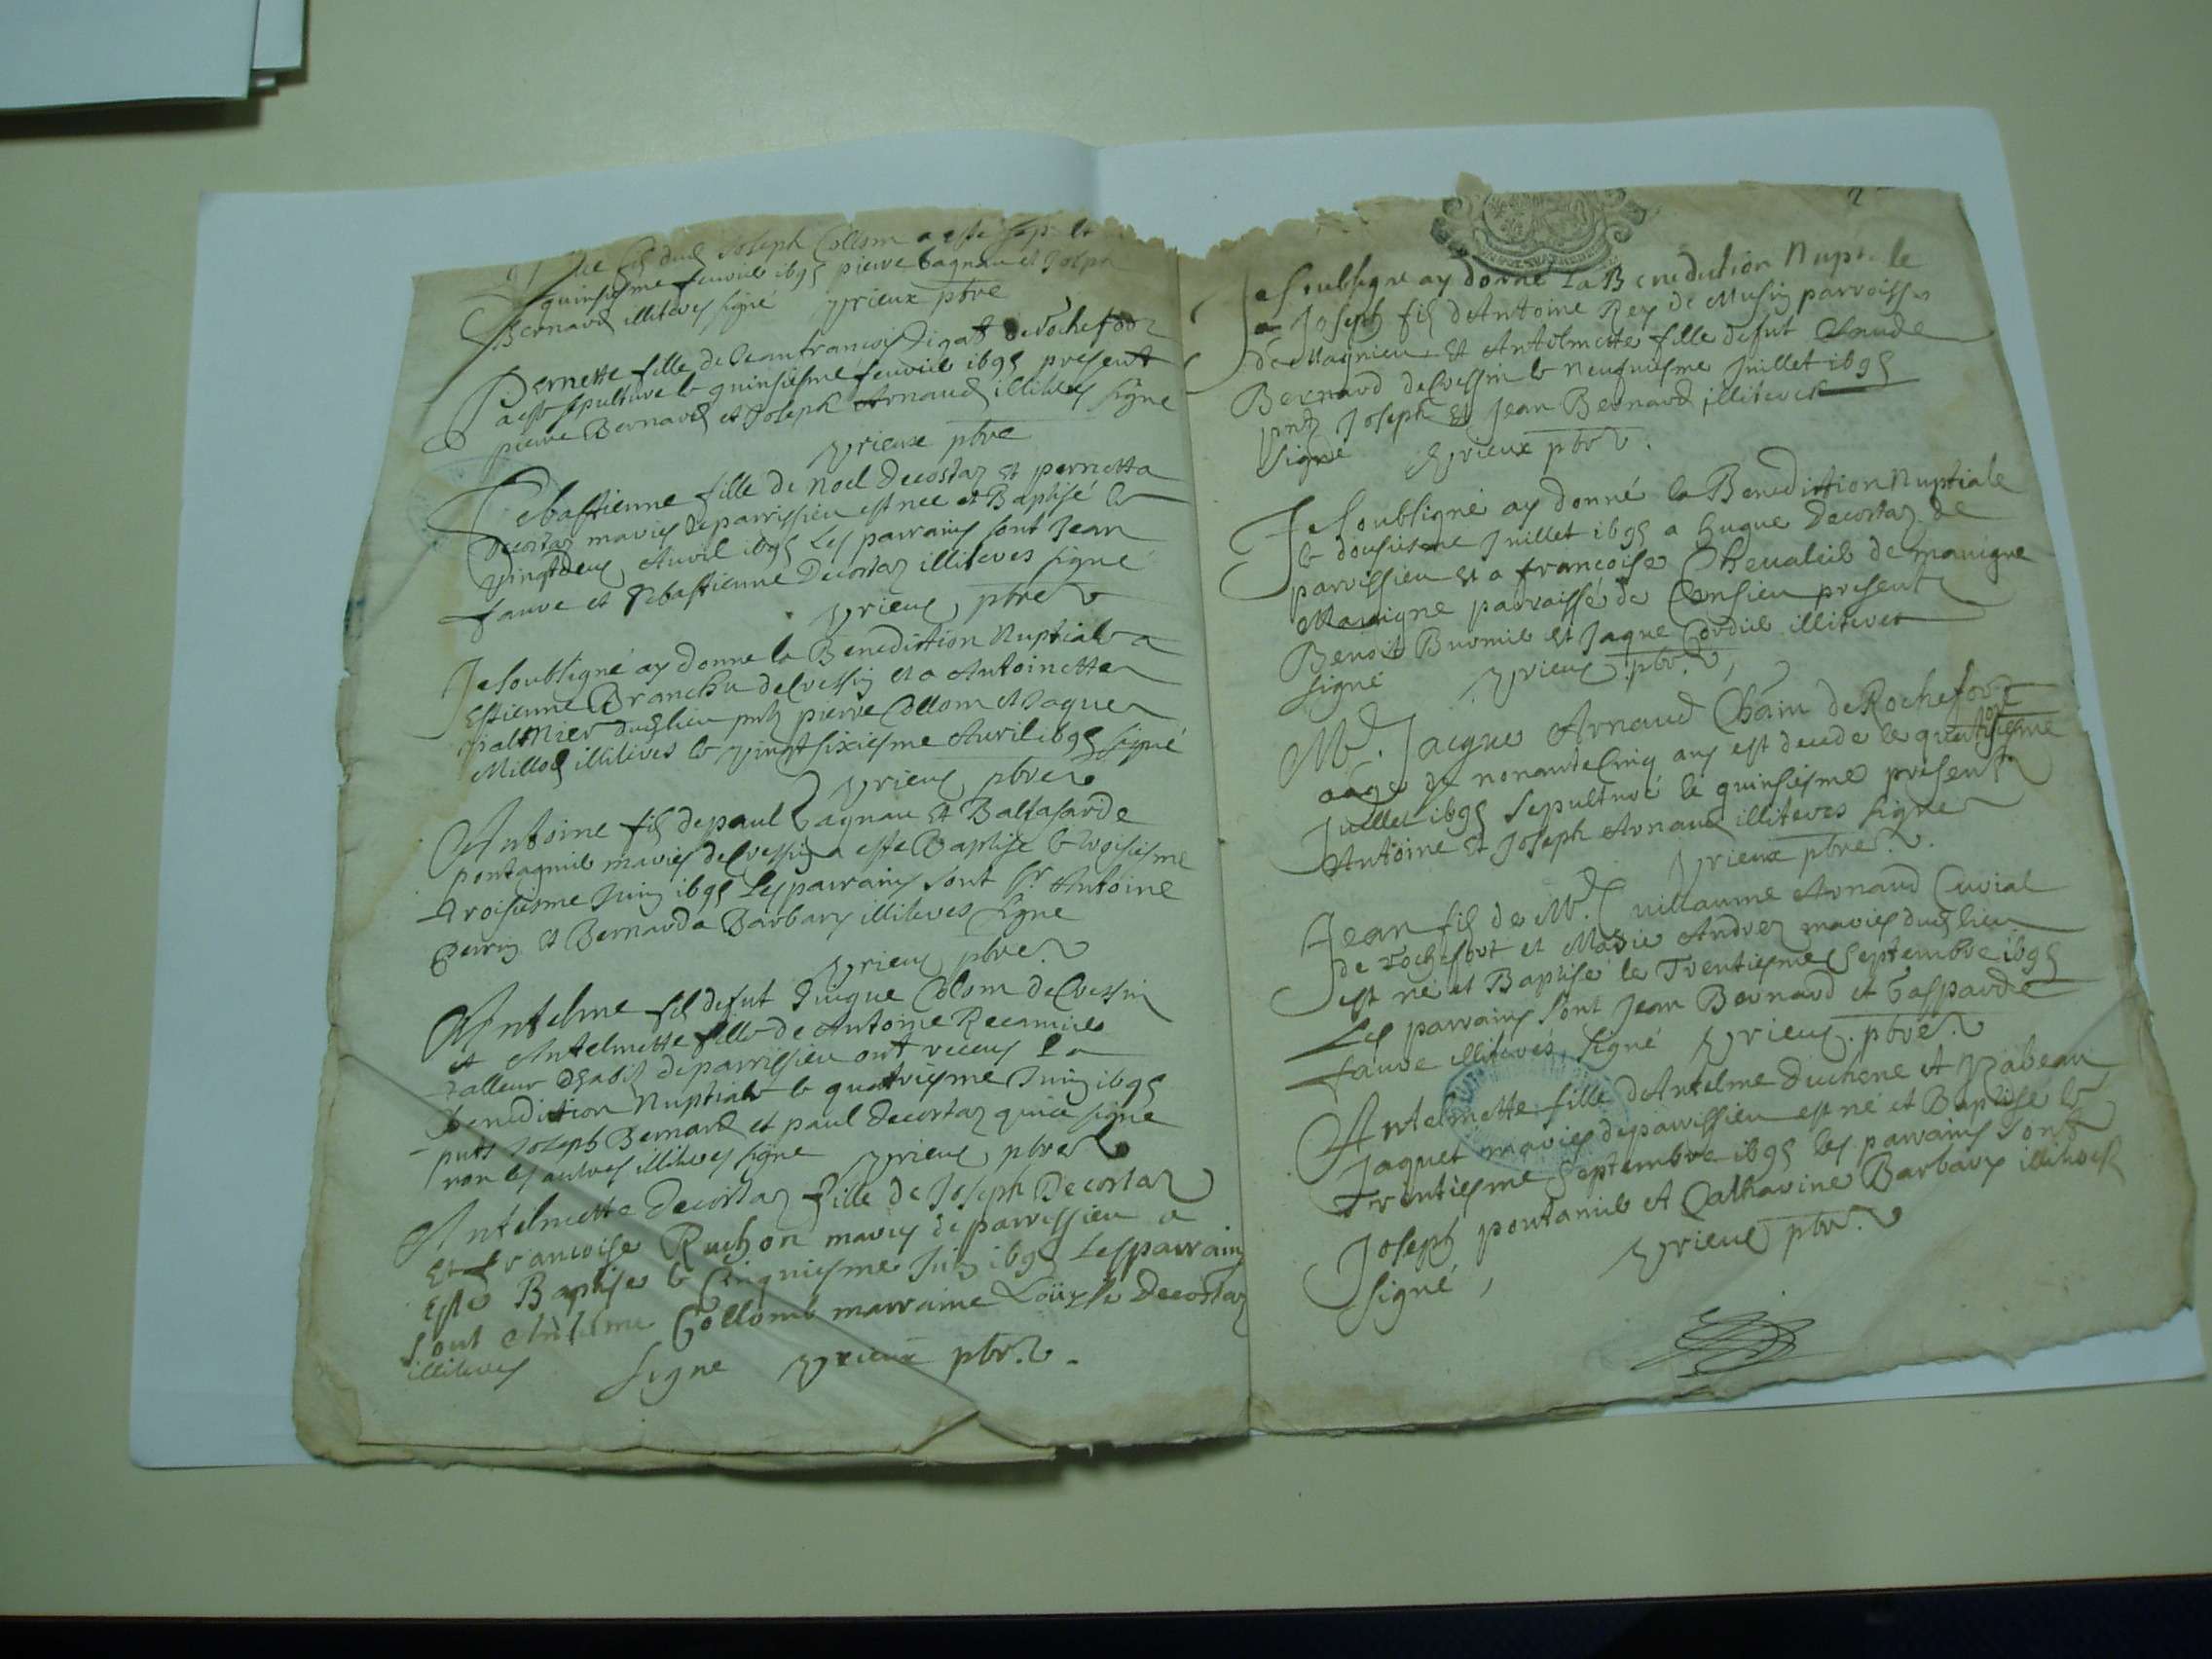 fils dud Joseph Colom a esté sep
quinsiesme feuvrie 1695 pierre Cagnau et Joseph
Bernard illiteres signé Yrieux pbre
Pernette fille de Jean francois Digat de Rochefort
a este sepulture le quinsiesme feuvrie 1695 present
pierre Bernard et Joseph Arnaud illiteres signe
Yrieux pbre
Sebastienne fille de Noel Decostaz et pernetta
Decostaz maries de parrissieu est nee et Baptisé le
vingtdeux Auvril 1695 Les parrains sont Jean
fauve et Sebastienne Decostaz illiteres signé
Yrieux pbre
Je soubsigné ay donne la Benediction Nuptiale a
Estienne Branchu de Cressin et a Antoinette
dud lieu pnts pierre Collom et Jaque
Millod illiteres le vingtsixiesme Auril 1695 signé
Yrieux pbre
Antoine fils de paul Cagnau et Baltasarde
pontagnie maries de Cressin a esté Baptise le troisiesme
troisiesme Juin 1695 Les parrains sont Sr Antoine
Perrin et Bernarda Barbary illiteres signe
Yrieux pbre
Antelme fils de fut Colom de Cressin
et Antelmette fille de Antoine Recamie
talleur d'habis de parrissieu ont receus la
Benediction Nuptiale le quatriesme Juin 1695
pnts Joseph Bernard et paul Decostaz qui a signe
non les autres illiteres signe Yrieux pbre
Antelmette Decostaz fille de Joseph Decostaz
Et francoise Ruchon maries de parrissieu a
Este Baptise le Cinquiesme Juin 1695 Les parrains
sont Collomb marraine Louyse Decostaz
illiteres signe Yrieux pbre
2
Je soubsigne ay donné La Benediction Nuptiale
a Joseph fils d'Antoine Rey de Musin parroisse
de Magnieu et Antelmette fille defut Claude
Bernard de Cressin le Neufuiesme Juillet 1695
pnts Joseph et Jean Bernard illiteres
signé Yrieux pbre
Je soubsigné ay donné la Benediction Nuptiale
le dousiesme Juillet 1695 a hugue Decostaz de
parrissieu et a francoise Chevalie de Marigne
Marigne parroisse de Consieu present
Benoit Burnie et Jaque Cordie illiteres
signé Yrieux pbre
Mr. Jacque Arnaud de Rochefort
aage de nonante Cinq ans est decede le
Juillet 1695 sepulturé le quinsiesme present
Antoine et Joseph Arnaud illiteres signe
Yrieux pbre
Jean fils de Mr. Guillaume Arnaud Curial
de rochefort et Marie Andrez maries dud lieu
est né et Baptisé le Trentiesme Septembre 1695
Les parrains sont Jean Bernard et Gasparde
fauve illiteres signé Yrieux pbre
Antelmette fille d'Antelme Duchene et Ysabeau
Jaquet maries de parrissieu est né et Baptise le
trentiesme Septembre 1695 les parrains sont
Joseph pontanie et Catharine Barbary illiteres
signé Yrieux pbre